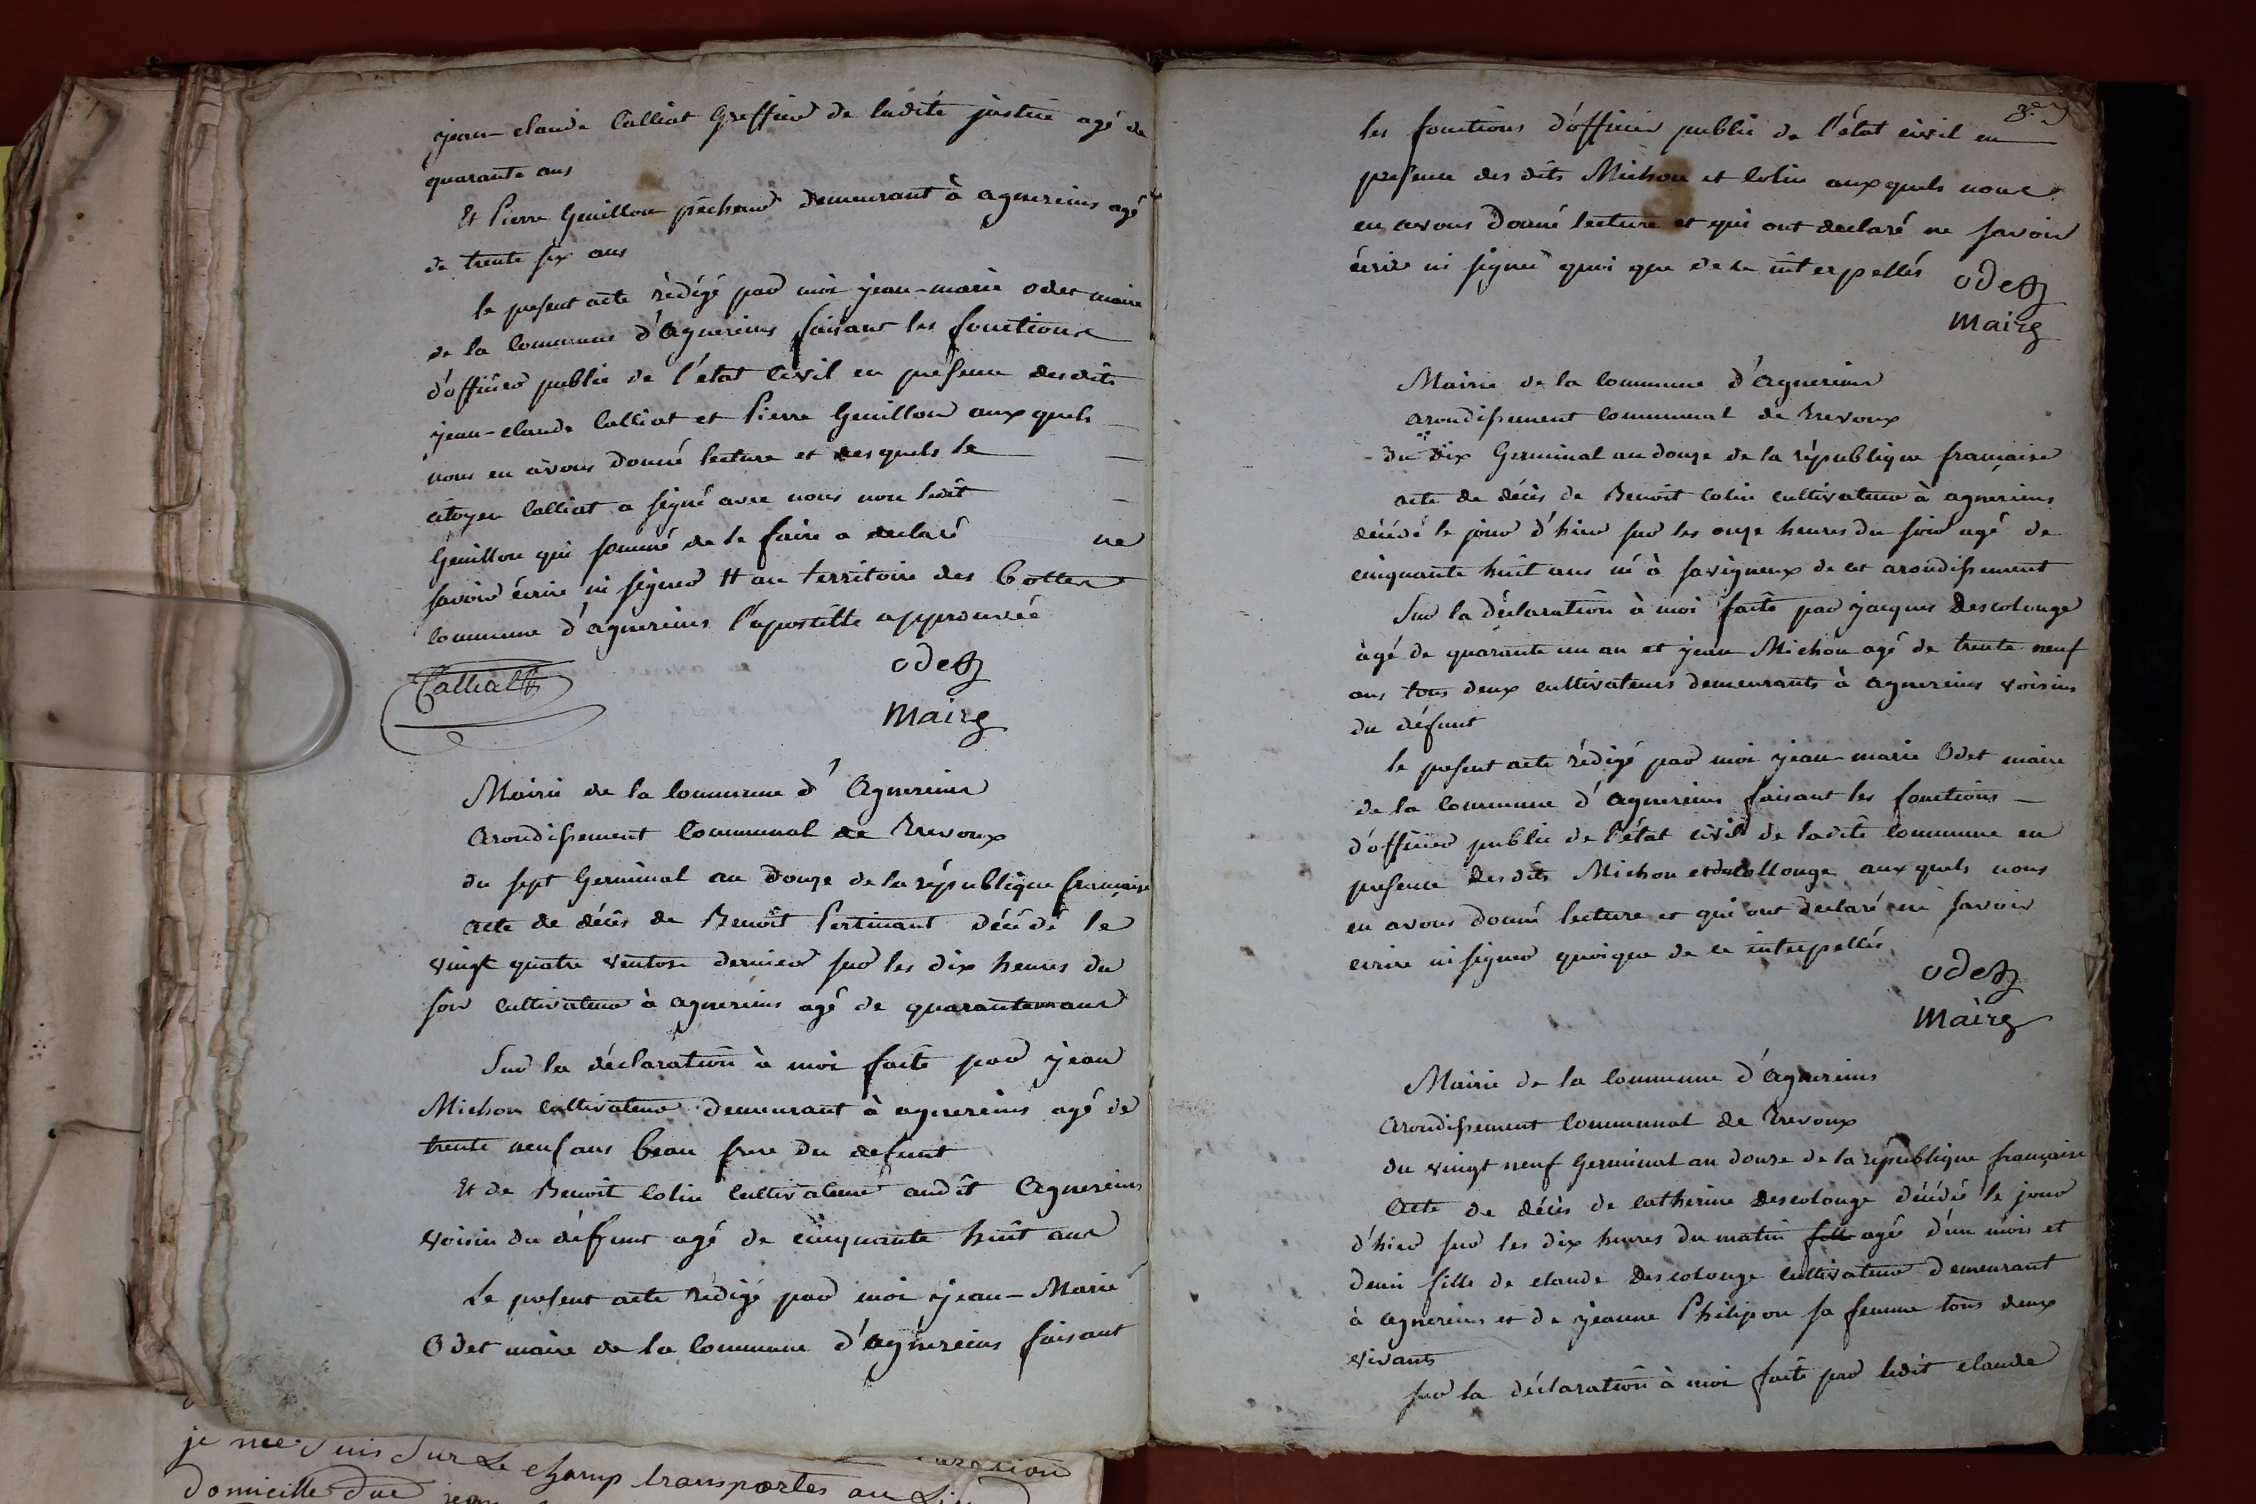 jean-claude Calliat Greffier de ladite justice agé de
quarante ans
Et Pierre Guillon pêcheur demeurant à agnereins agé
de trente six ans
le present acte rédigé par moi jean-marie odet maire
de la Commune d'agnereins faisant les fonctions
d'officier public de l'état Civil en présence desdits
jean-claude Calliat et Pierre Guillon aux quels
nous en avons donné lecture et des quels le
citoyen Calliat a signé avec nous non ledit
Guillon qui sommé de le faire a declaré ne
savoir écrire ni signer # au territoire des Bottes
Commune d'agnereins l'apostille approuvée
Calliat odet
Maire
Mairie de la Commune d'Agnereins
arondissement Communal de Trevoux
du sept Germinal an Douze de la république française
acte de décès de Benoît Pertinant décédé le
vingt quatre ventose dernier sur les dix heures du
soir cultivateur à agnereins agé de quarante ans
Sur la déclaration à moi faite par jean
Michon cultivateur demeurant à agnereins agé de
trente neuf ans beau frere du defunt
Et de Benoît Colin cultivateur audit Agnereins
voisin du défunt agé de cinquante huit ans
Le present acte rédigé par moi jean-Marie
Odet maire de la Commune d'agnereins faisant
3e
les fonctions d'officier public de l'état civil en
presence des dits Michon et Colin aux quels nous
en avons donné lecture et qui ont declaré ne savoir
écrire ni signer quoi que de ce interpellés
odet
Maire
Mairie de la Commune d'Agnereins
arondissement Communal de Trevoux
du dix Germinal an douze de la république française
acte de décès de Benoît Colin cultivateur à agnereins
décédé le jour d'hier sur les onze heures du soir agé de
cinquante huit ans né à savigneux de cet arondissement
Sur la déclaration à moi faite par jacques Descolonge
àgé de quarante un an et jean Michon agé de trente neuf
ans tous deux cultivateurs demeurants à agnereins voisins
du défunt
le present acte rédigé par moi jean-marie Odet maire
de la Commune d'agnereins faisant les fonctions
d'officier public de l'état civil de ladite Commune en
presence desdits Michon et descollonge aux quels nous
en avons donné lecture et qui ont declaré ni savoir
ecrire ni signer quoique de ce interpellés
odet
Maire
Mairie de la Commune d'agnereins
arondissement Communal de Trevoux
du vingt neuf Germinal an douze de la république française
Acte de décès de Catherine Descolonge décédée le jour
d'hier sur les dix heures du matin fille agé d'un mois et
demi fille de claude Descolonge cultivateur demeurant
à agnereins et de jeanne Philipon sa femme tous deux
vivants
sur la déclaration à moi faite par ledit claude
je me suis sur Le champ transportés au
Domicille